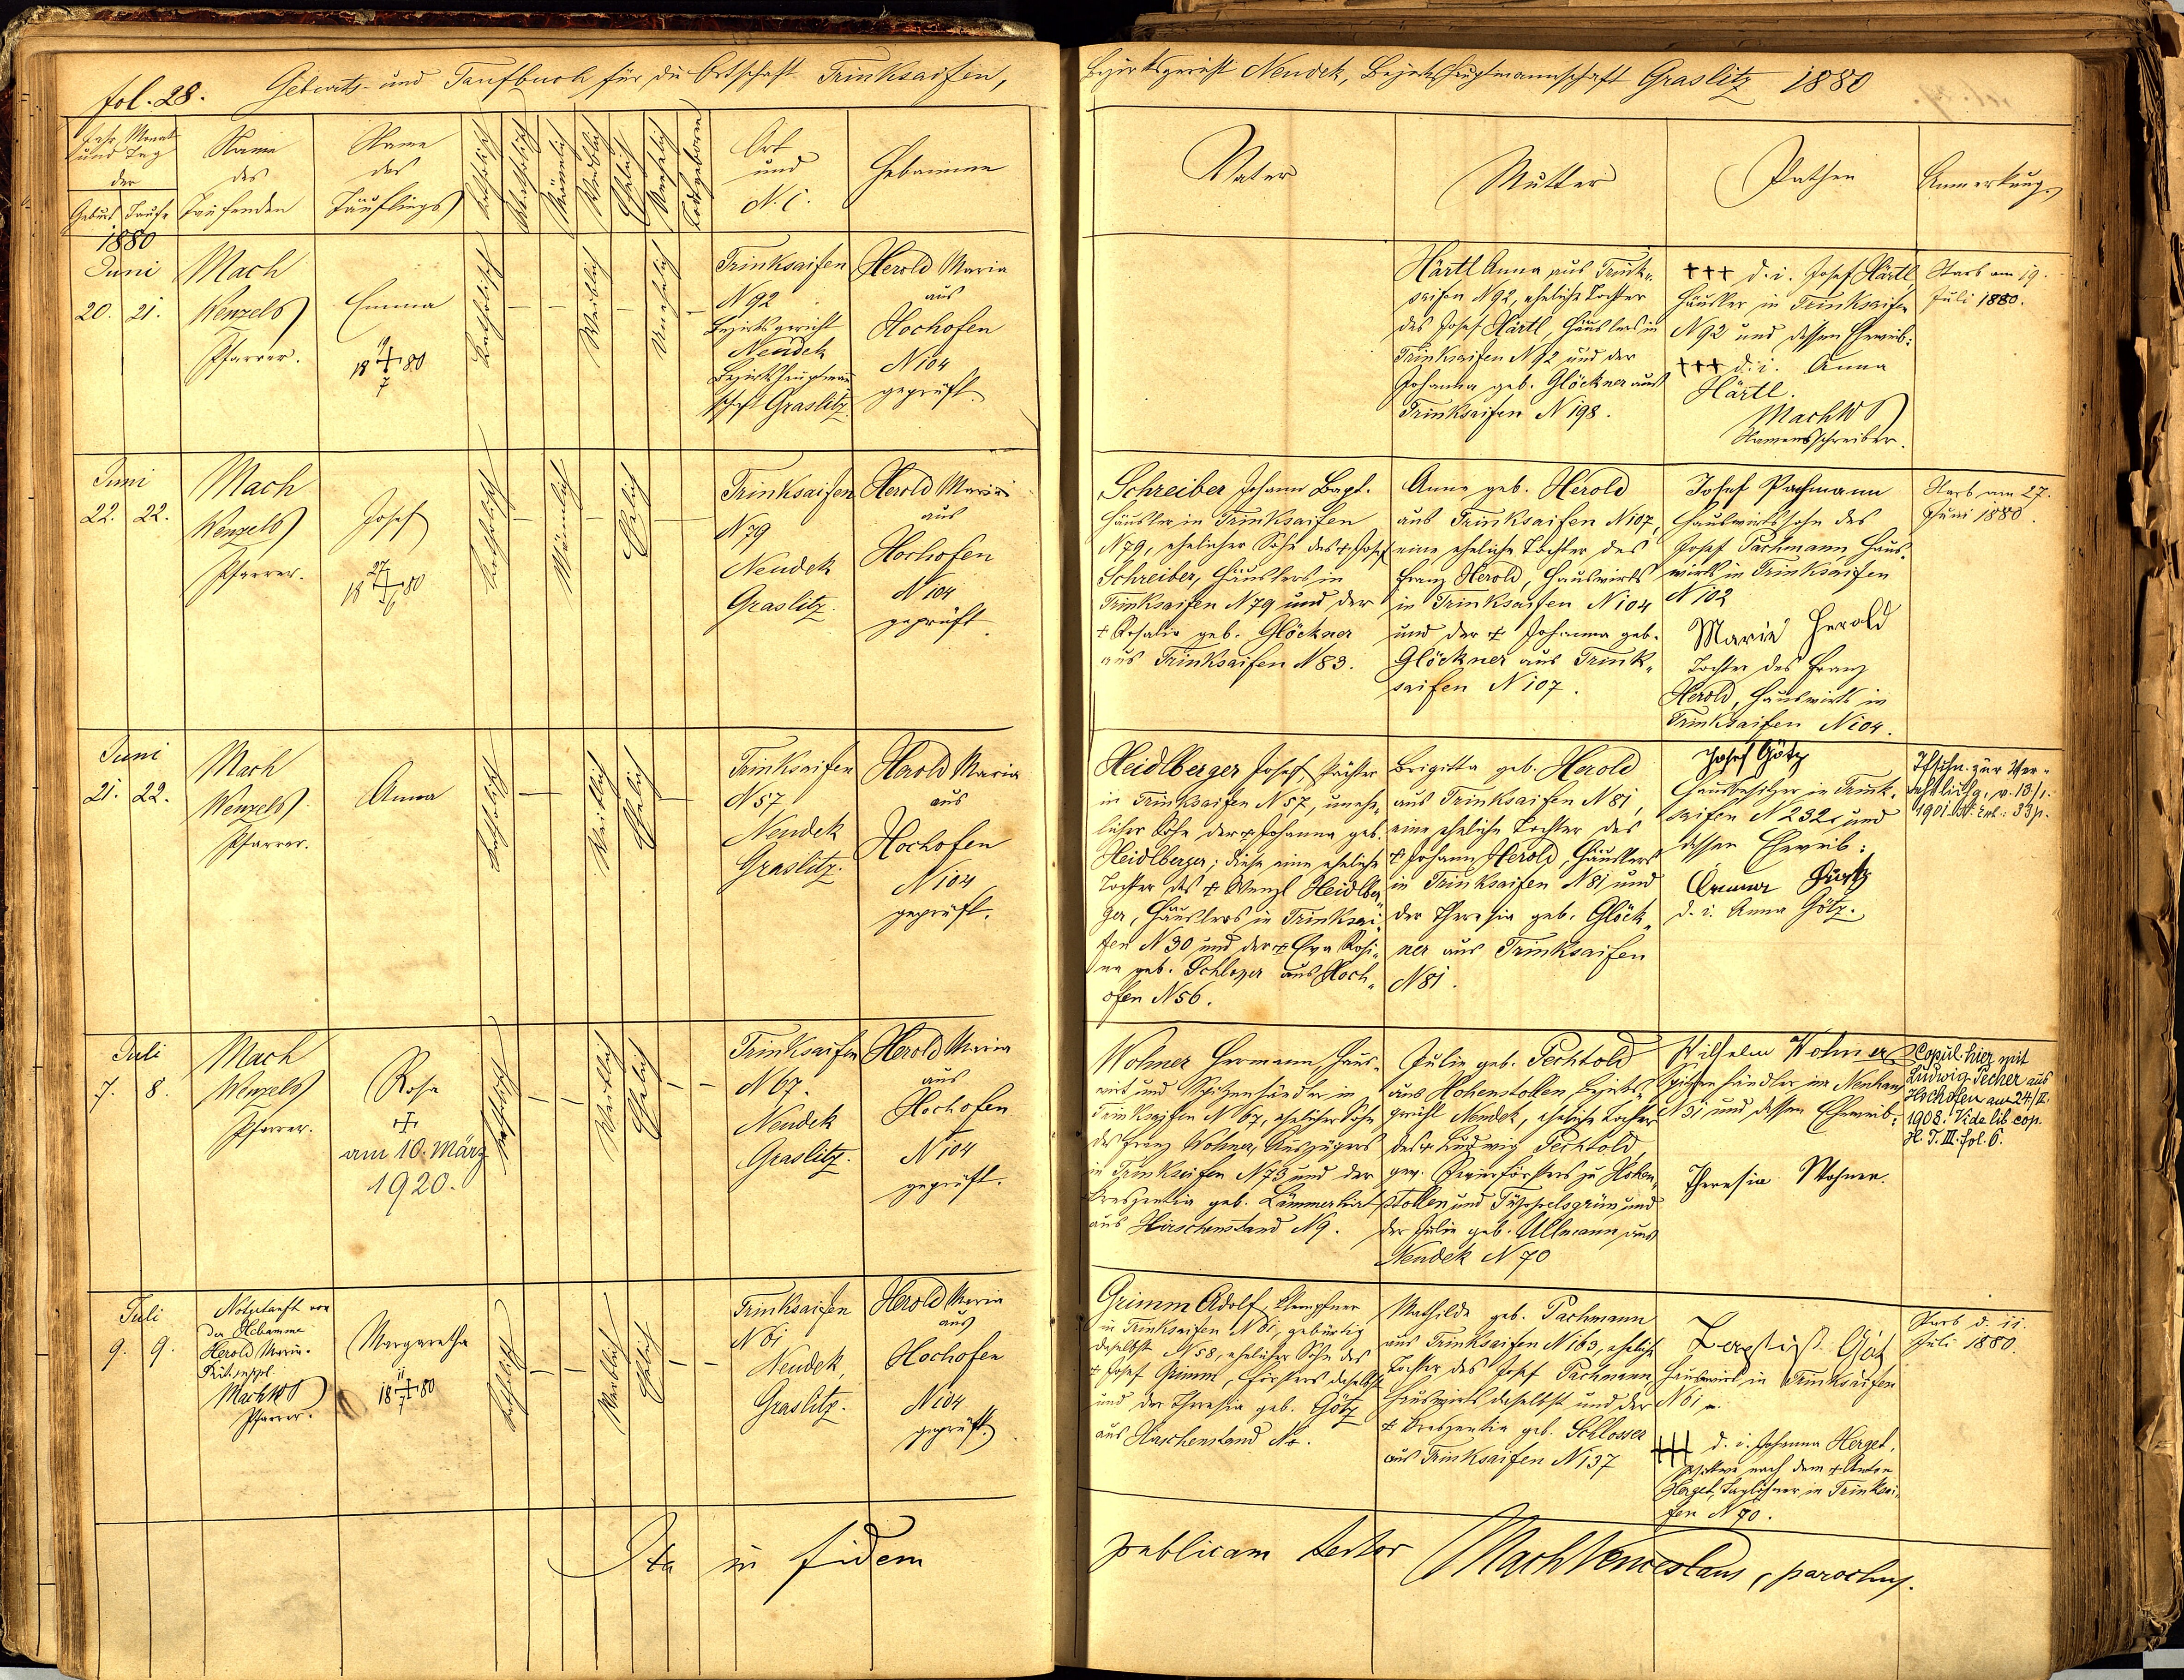 fol. 28.
Geburts- und Taufbuch für die Ortschaft Trinksaifen,
Bezirksgericht Neudek, Bezirkshauptmannschaft Graslitz 1880
Jahr, Monat
und Tag
der
Geburt Taufe
Name
des
Taufenden
Name
des
Täuflings
Katholisch
Akatholisch
Männlich
Weiblich
Ehelich
Unehelich
Todtgeboren
Ort
und
N. C.
Hebamme
Vater
Mutter
Pathen
Anmerkung
1880
Juni
20. 21.
Mach
Wenzels
Pfarrer.
Emma
19
18 + 80
7
Katholisch
Weiblich
Unehelich
Trinksaifen
N 92
Bezirksgericht
Neudek
Bezirkshauptmann
schaft Graslitz
Herold Maria
aus
Hochofen
N 104
geprüft.
Härtl Anna aus Trink-
saifen N 92, eheliche Tochter
des Josef Härtl, Häuslers in
Trinksaifen N 92 und der
Johanna geb. Glöckner aus
Trinksaifen N 198.
+++ d. i. Josef Härtl,
Häusler in Trinksaifen
N 92 und dessen Eheweib:
+++ d. i. Anna
Härtl.
Mach W
Namensschreiber.
Starb am 19.
Juli 1880.
Juni
22. 22.
Mach
Wenzels
Pfarrer.
Josef
27
18 + 80
6
Katholisch
Männlich
Ehelich
Trinksaifen
N 79
Neudek
Graslitz.
Herold Maria
aus
Hochofen
N 104
geprüft.
Schreiber Johann Bapt.
Häusler in Trinksaifen
N 79, ehelicher Sohn des + Josef
Schreiber, Häuslers in
Trinksaifen N 79 und der
+ Rosalia geb. Glöckner
aus Trinksaifen N 83.
Anna geb. Herold
aus Trinksaifen N 107,
eine eheliche Tochter des
Franz Herold, Hauswirts
in Trinksaifen N 104
und der + Johanna geb.
Glöckner aus Trink-
saifen N 107.
Josef Pachmann
Hauswirtssohn des
Josef Pachmann Haus-
wirts in Trinksaifen
N 102
Maria Herold
Tochter des Franz
Herold, Hauswirts in
Trinksaifen N 104.
Starb am 27.
Juni 1880.
Juni
21. 22.
Mach
Wenzels
Pfarrer.
Anna
Katholisch
Weiblich
Ehelich
Trinksaifen
N 57
Neudek
Graslitz.
Herold Maria
aus
Hochofen
N 104
geprüft.
Heidlberger Josef, Pächter
in Trinksaifen N 57, unehe-
licher Sohn der + Johanna geb.
Heidlberger; diese eine eheliche
Tochter des + Wenzl Heidlber-
ger, Häuslers in Trinksai-
fen N 30 und der + Eva Rosi-
na geb. aus Hoch-
ofen N 56.
Brigitta geb. Herold
aus Trinksaifen N 81,
eine eheliche Tochter des
+ Johann Herold, Häuslers
in Trinksaifen N 81 und
der Theresia geb. Glöck-
ner aus Trinksaifen
N 81.
Josef Götz
Hausbesitzer in Trink-
saifen N 232, und
dessen Eheweib:
d. i. Anna Götz.
zur Ver-
v. 13/1.
1901
Juli
7. 8.
Mach
Wenzels
Pfarrer.
Rosa
+
am 10. März
1920.
Katholisch
Weiblich
Ehelich
Trinksaifen
N 67.
Neudek
Graslitz.
Herold Maria
aus
Hochofen
N 104
geprüft.
Wohner Hermann Haus-
wirt und Spitzenhändler in
Trinksaifen N 67, ehelicher Sohn
des Franz Wohner, Auszüglers
in Trinksaifen N 73 und der
Kreszentia geb. Lämmerhirt
aus Hirschenstand N 9.
Julie geb. Pechtold
aus Hohenstollen, Bezirks-
gericht Neudek, eheliche Tochter
des + Ludwig Pechtold,
gew. Revierförsters zu Hohen-
stollen und und
der Julie geb. Ullmann aus
Neudek N 70
Wilhelm Wohner
Spitzenhändler in Neuhaus
N 31 und dessen Eheweib:
Theresia Wohner.
Copul. hier mit
Ludwig Pecher aus
Hochofen am 24./II.
1908. Vide lib. cop.
H. T. III. fol. 6.
Juli
9. 9.
Notgetauft von
der Hebamme
Herold Maria.
Rit. suppl.
Mach W
Pfarrer.
Margaretha
11
18 + 80
7
Katholisch
Weiblich
Ehelich
Trinksaifen
N 61
Neudek,
Graslitz.
Herold Maria
aus
Hochofen
N 104
geprüft.
Grimm Adolf, Klempfner
in Trinksaifen N 61, gebürtig
daselbst N 58, ehelicher Sohn des
+ Josef Grimm, Försters daselbst
und der Theresia geb. Götz
aus Hirschenstand
Mathilde geb. Pachmann
aus Trinksaifen N 163, eheliche
Tochter des Josef Pachmann
Hauswirts daselbst und der
+ Kreszentia geb. Schlosser
aus Trinksaifen N 137
Baptist Götz
Hauswirt in Trinksaifen
N 61.
+++ d. i. Johanna Herget,
Wittwe nach dem + Anton
Herget, Taglöhner in Trinksai-
fen N 70.
Starb d. 11.
Juli 1880.
Ita in fidem
publicam testor
Mach Venceslaus, parochus.